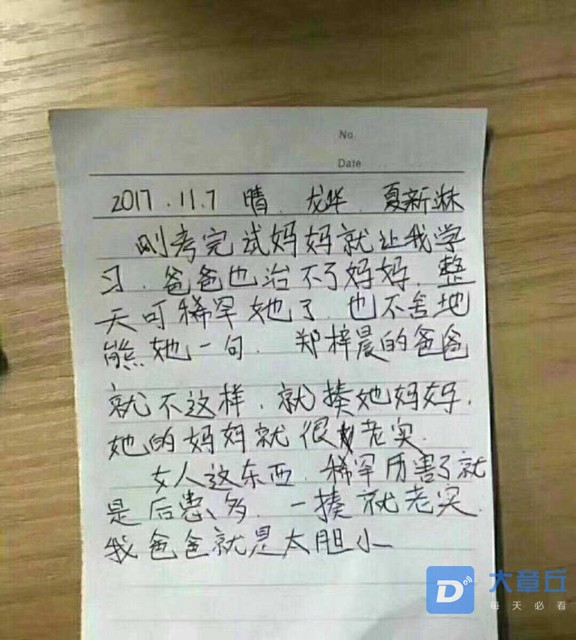 No.
Date
2017.11.7 晴. 龙华. 夏新淋
刚考完试妈妈就让我学
习.爸爸也治不了妈妈.整
天可稀罕她了.也不舍地
熊她一句. 郑梓晨的爸爸
就不这样.就揍她妈妈.
她的妈妈就很老实.
女人这东西.稀罕历害了就
是后患多. 一揍就老实.
我爸爸就是太胆小
大章丘
每天必看